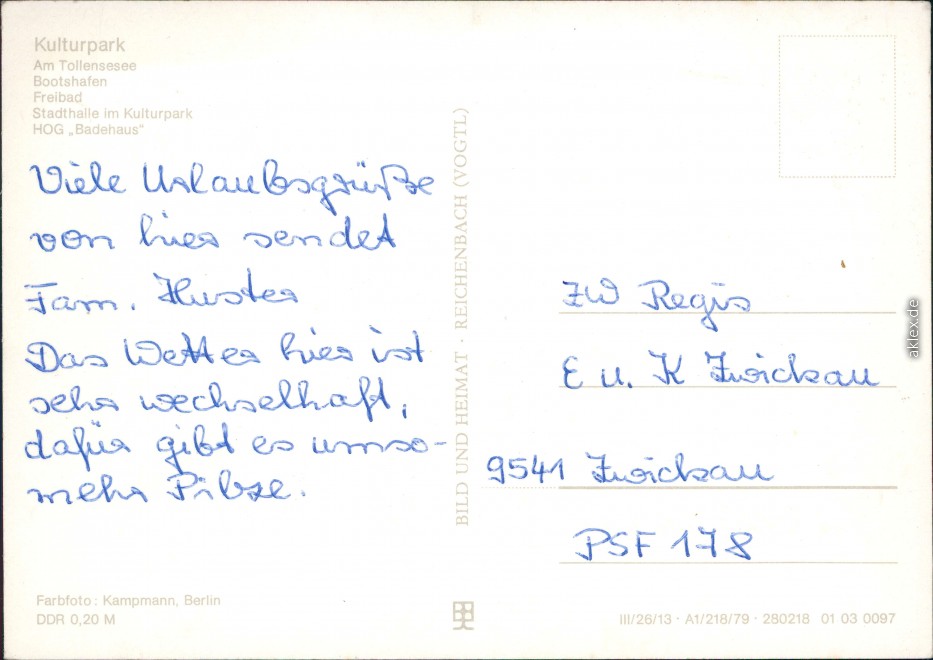 Kulturpark
Am Tollensesee
Bootshafen
Freibad
Stadthalle im Kulturpark
HOG „Badehaus"
Viele Urlaubsgrüße
von hier sendet
Fam. Huster
Das Wetter hier ist
sehr wechselhaft,
dafür gibt es umso-
mehr Pilze.
Farbfoto: Kampmann, Berlin
DDR 0,20 M
BILD UND HEIMAT · REICHENBACH (VOGTL)
ZW Regis
E u. K Zwickau
9541 Zwickau
PSF 178
III/26/13 · A1/218/79 · 280218 01 03 0097
aklex.de